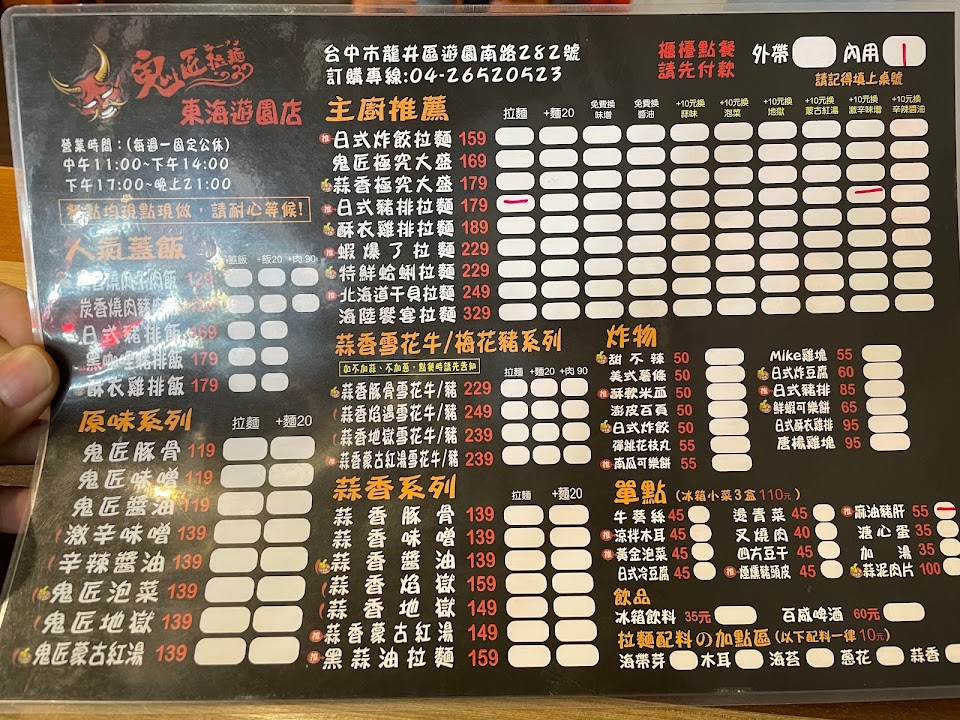 鬼匠拉麵
ラーメン
東海遊園店
營業時間:(每週一固定公休)
中午11:00~下午14:00
下午17:00~晚上21:00
餐點均現點現做,請耐心等候!
台中市龍井區遊園南路282號
訂購專線:04-26520523
櫃檯點餐 請先付款
外帶 內用 1
請記得填上桌號
主廚推薦 拉麵 +麵20 免費換味增 免費換醬油 +10元換蒜味 +10元換泡菜 +10元換地獄 +10元換蒙古紅湯 +10元換激辛味增 +10元換辛辣醬油
推 日式炸餃拉麵 159
鬼匠極究大盛 169
蒜香極究大盛 179
推 日式豬排拉麵 179
酥衣雞排拉麵 189
推 蝦爆了拉麵 229
特鮮蛤蜊拉麵 229
推 北海道干貝拉麵 249
海陸饗宴拉麵 329
人氣蓋飯 蓋飯 +飯20 +肉90
炭香燒肉豬肉飯
日式豬排飯 169
黑咖哩豬排飯 179
酥衣雞排飯 179
原味系列 拉麵 +麵20
鬼匠豚骨 119
鬼匠味噌 119
鬼匠醬油 119
激辛味噌 139
辛辣醬油 139
鬼匠泡菜 139
鬼匠地獄 139
鬼匠蒙古紅湯 139
蒜香雪花牛/梅花豬系列
如不加蒜、不加蔥,點餐時請先告知
拉麵 +麵20 +肉90
蒜香豚骨雪花牛/豬 229
蒜香焰遇雪花牛/豬 249
蒜香地獄雪花牛/豬 239
推 蒜香蒙古紅湯雪花牛/豬 239
蒜香系列 拉麵 +麵20
蒜香豚骨 139
蒜香味噌 139
蒜香醬油 139
蒜香焰獄 159
蒜香地獄 149
推 蒜香蒙古紅湯 149
推 黑蒜油拉麵 159
炸物
甜不辣 50
美式薯條 50
推 酥軟米血 50
澎皮百頁 50
日式炸餃 50
彈跳花枝丸 55
推 南瓜可樂餅 55
Mike雞塊 55
日式炸豆腐 60
推 日式豬排 85
鮮蝦可樂餅 65
日式酥衣雞排 95
唐楊雞塊 95
單點 (冰箱小菜3盒110元)
牛蒡絲 45 燙青菜 45 推 麻油豬肝 55
推 涼拌木耳 45 叉燒肉 40 溏心蛋 35
推 黃金泡菜 45 四方豆干 45 加湯 35
日式冷豆腐 45 推 煙燻豬頭皮 45 蒜泥肉片 100
飲品
冰箱飲料 35元 百威啤酒 60元
拉麵配料の加點區 (以下配料一律10元)
海帶芽 木耳 海苔 蔥花 蒜香